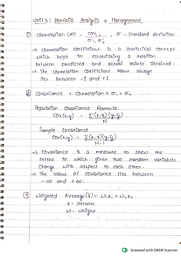 Unit 3: Portfolio Analysis & Management
① Correlation (r) = COV / σ₁ σ₂ σ : Standard deviation
→ Correlation coefficient is a statistical concept
which helps in establishing a relation
between predicted and actual values obtained.
→ The correlation coefficient value always
lies between -1 and +1
② Covariance = Correlation × σ₁ × σ₂
Population Covariance Formula
Cov(x,y) = Σ(x-x̄)(y-ȳ) / N
Sample Covariance
Cov(x,y) = Σ(x-x̄)(y-ȳ) / N-1
→ Covariance is a measure to show the
extent to which given two random variables
change with respect to each other.
→ The value of covariance lies between
-∞ and +∞.
③ Weighted Average (x̄) = w₁x₁ + w₂x₂
x = return
w = weight
Scanned with OKEN Scanner